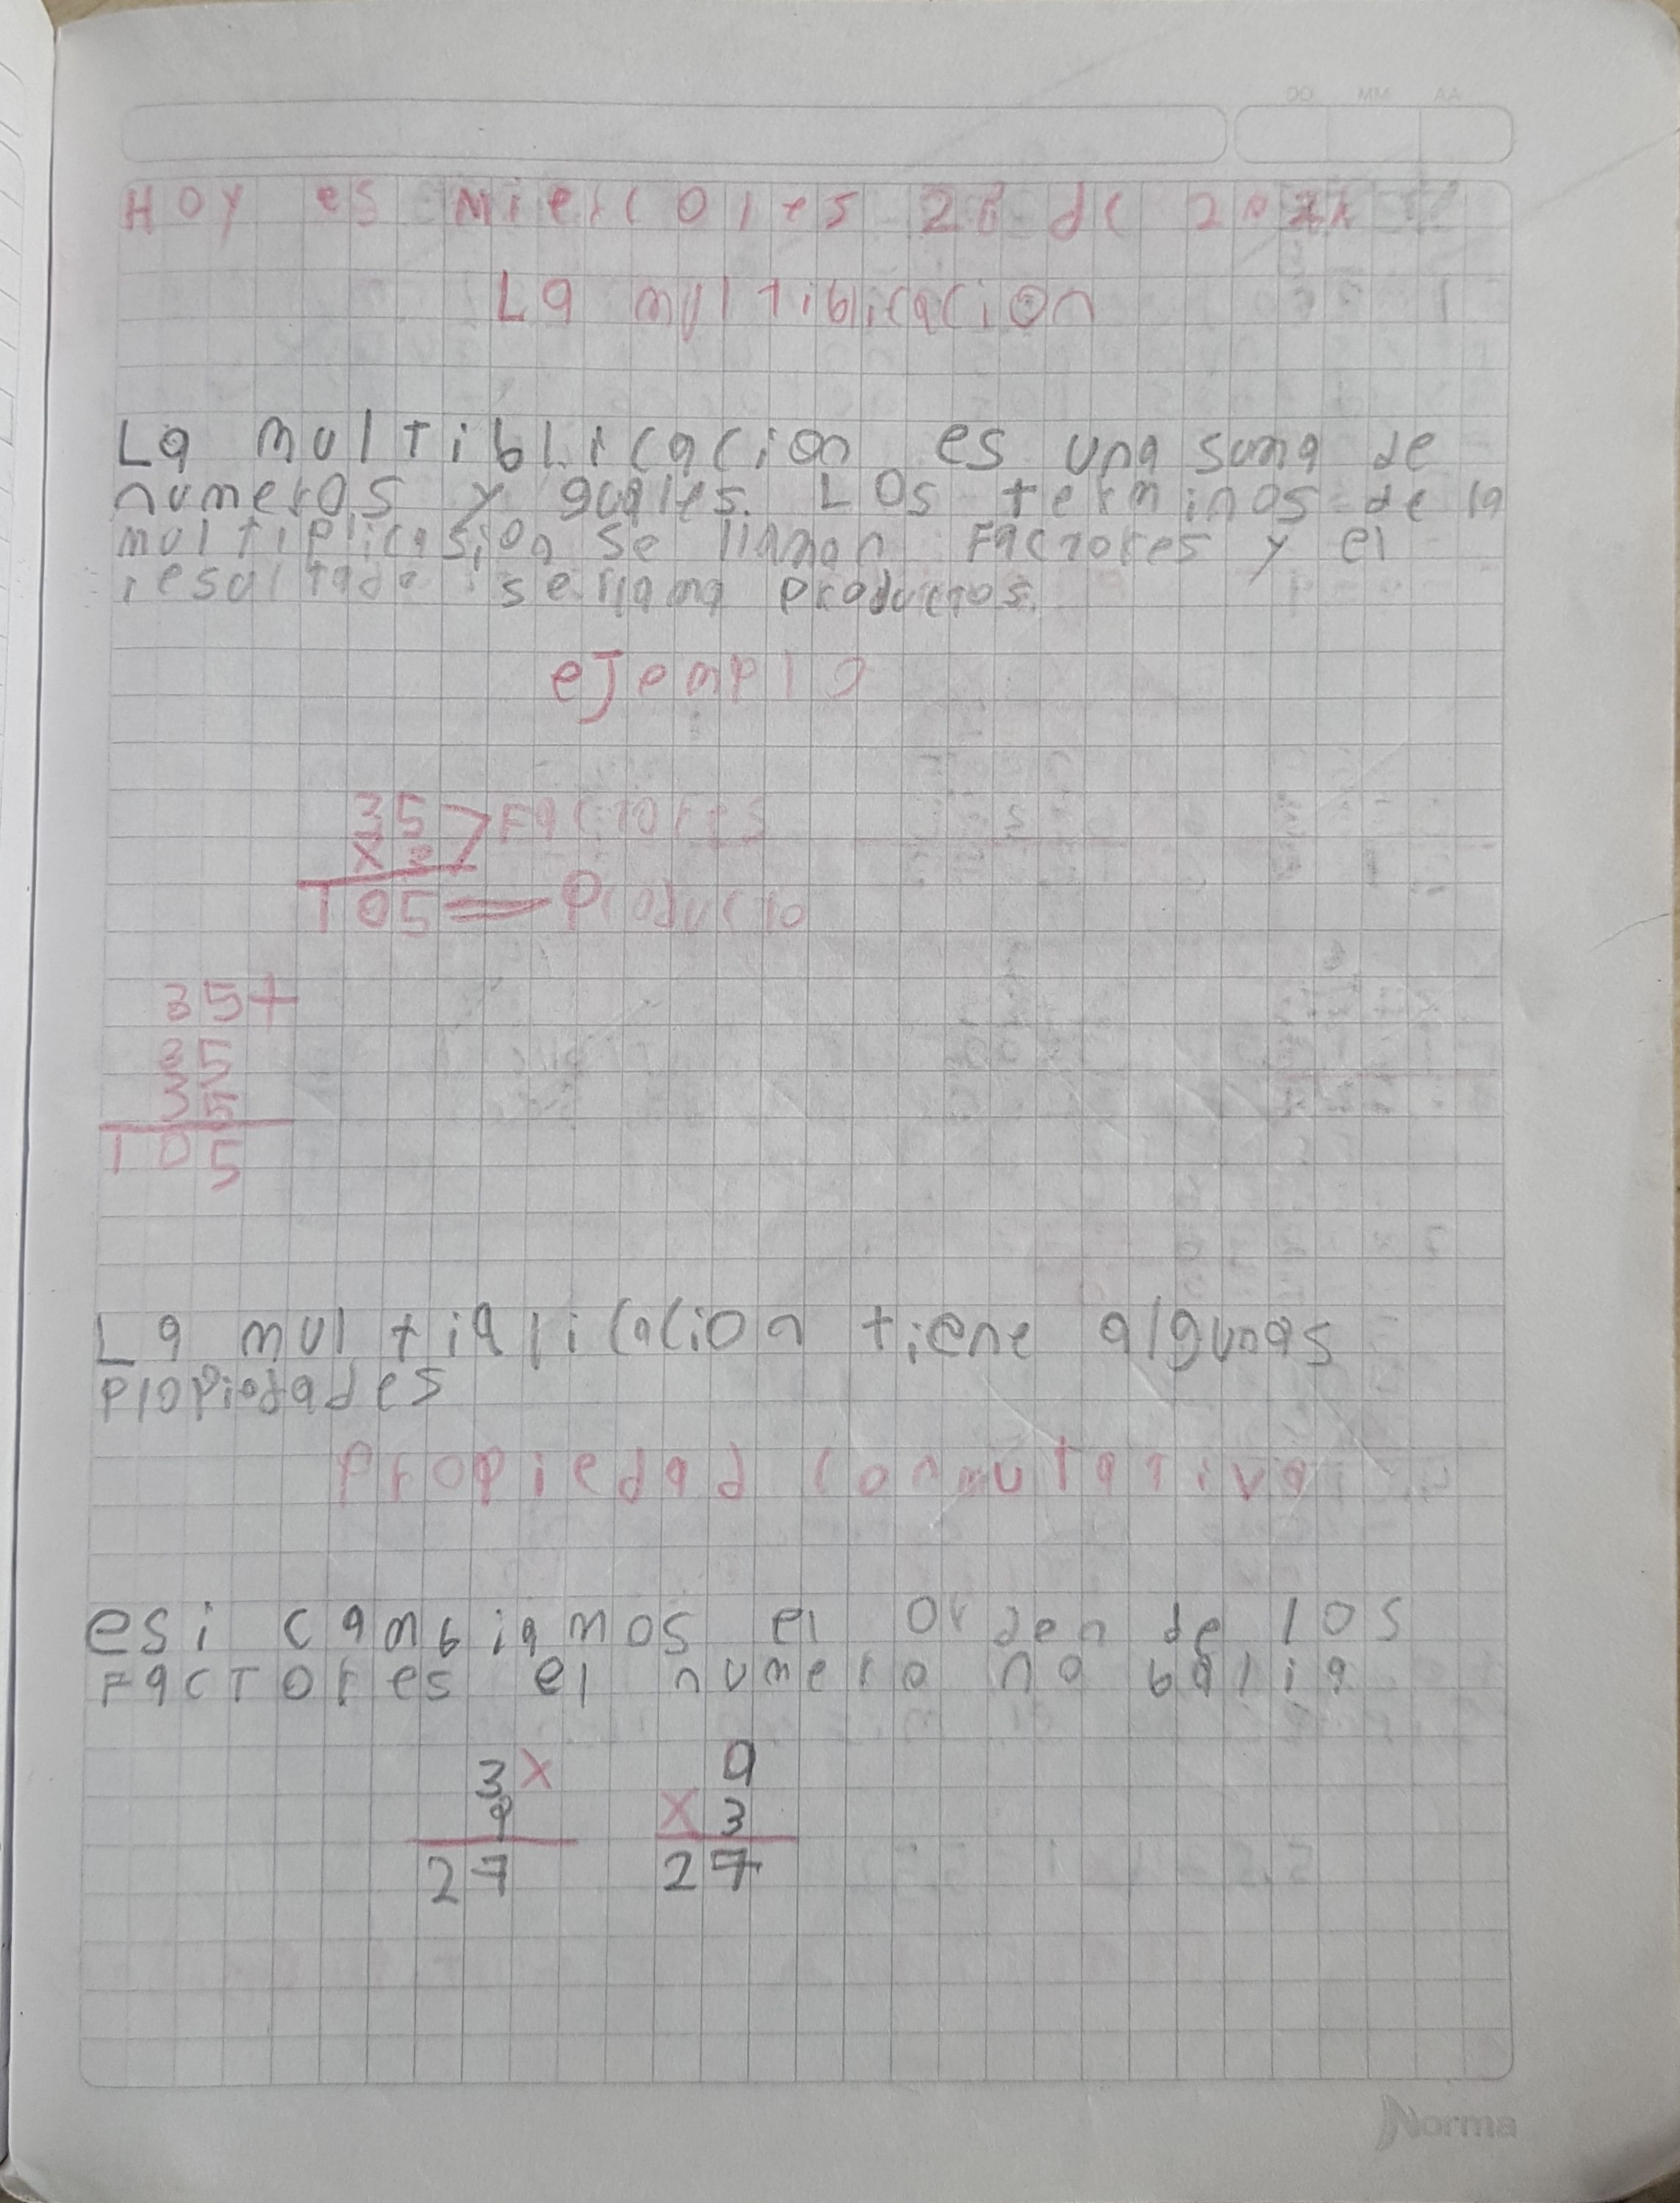 DD MM AA
Hoy es miercoles 28 de
La multiblicacion
La multiblicacion es una suma de
numeros y guales. Los terminos de la
multiplicasion se llaman Factores y el
resultado se llama productos.
ejemplo
35 Factores
x 3
105 Producto
35+
35
35
105
La multiqlicacion tiene algunas
propiedades
Propiedad conmutativa
esi cambiamos el orden de los
Factores el numero no balia
3x 9
9 x 3
27 27
Norma